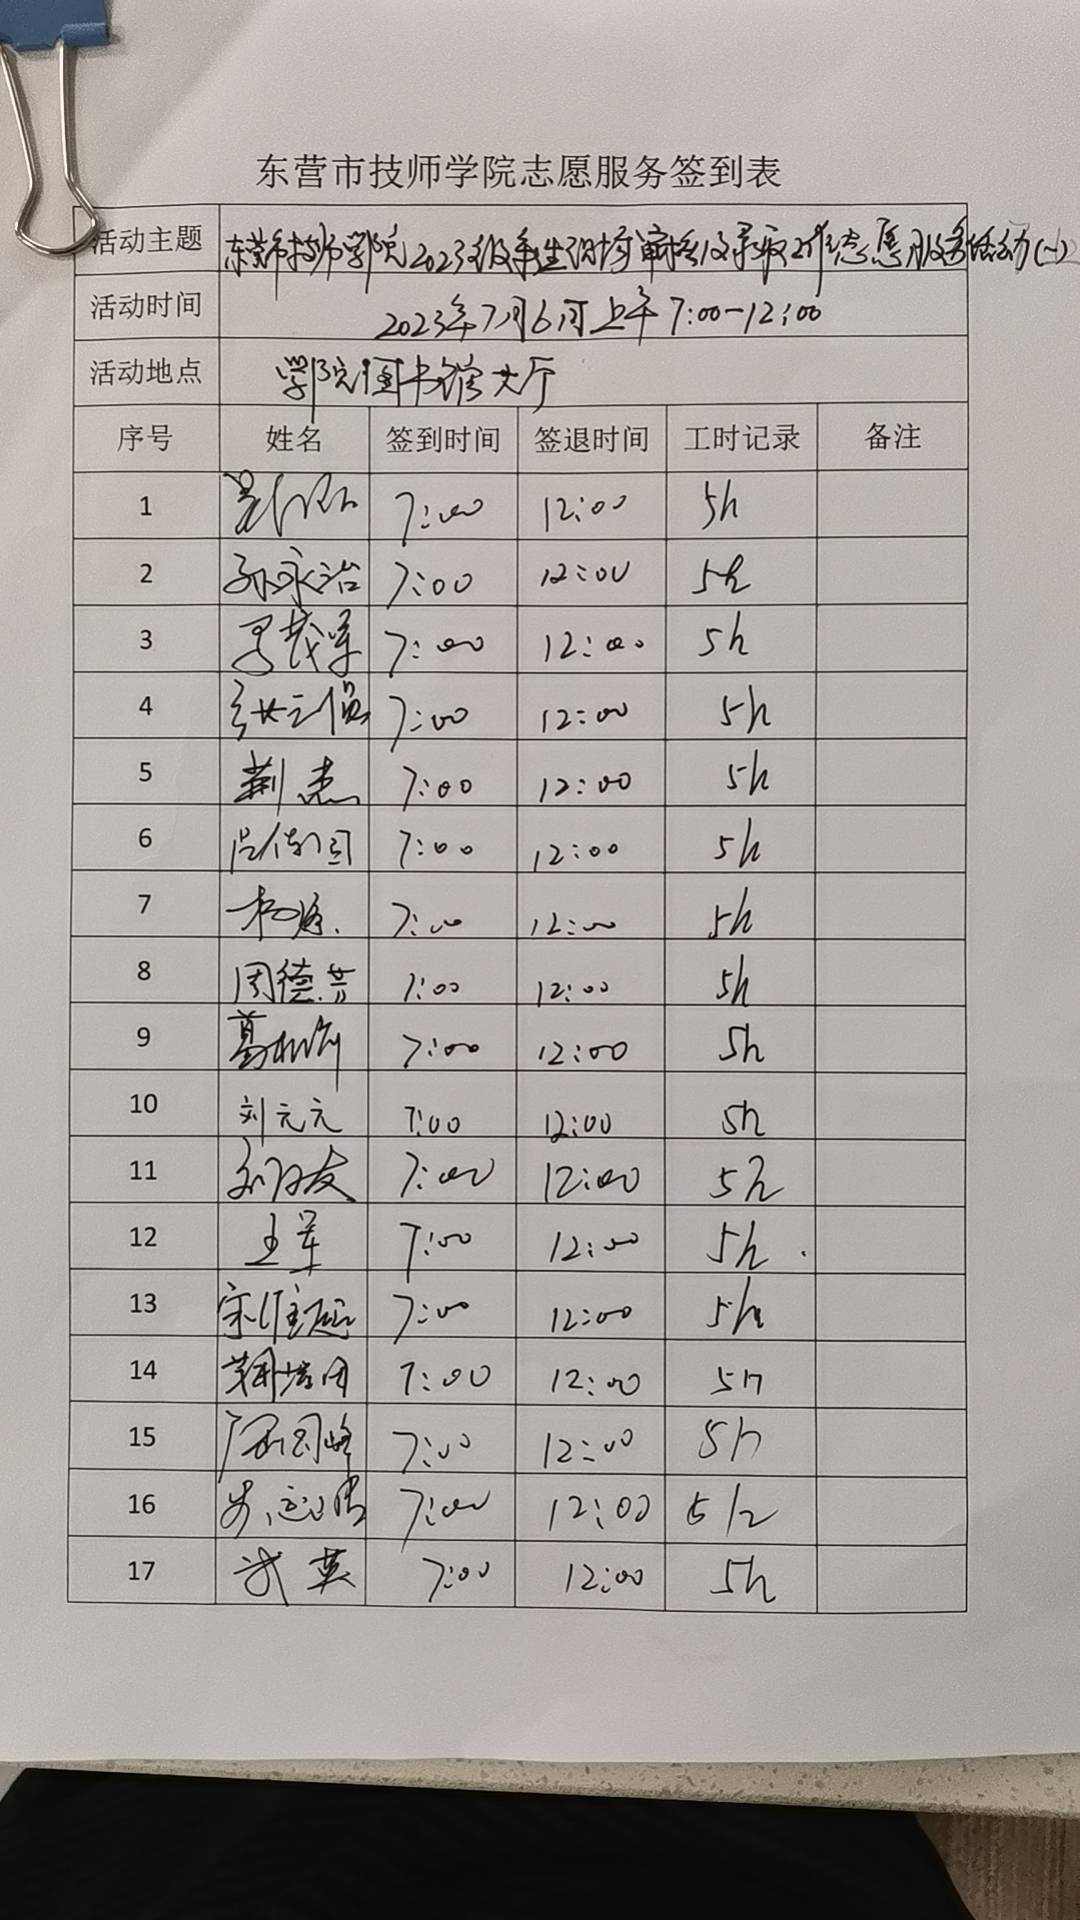 东营市技师学院志愿服务签到表
活动主题 东营市技师学院2023级新生现场审核及录取工作志愿服务活动(一)
活动时间 2023年7月6日上午 7:00-12:00
活动地点 学院图书馆大厅
序号 姓名 签到时间 签退时间 工时记录 备注
1 7:00 12:00 5h
2 孙永治 7:00 12:00 5h
3 7:00 12:00 5h
4 7:00 12:00 5h
5 荆杰 7:00 12:00 5h
6 7:00 12:00 5h
7 7:00 12:00 5h
8 周德芳 7:00 12:00 5h
9 7:00 12:00 5h
10 刘元元 7:00 12:00 5h
11 7:00 12:00 5h
12 王军 7:00 12:00 5h
13 7:00 12:00 5h
14 7:00 12:00 5h
15 7:00 12:00 5h
16 7:00 12:00 5h
17 武英 7:00 12:00 5h